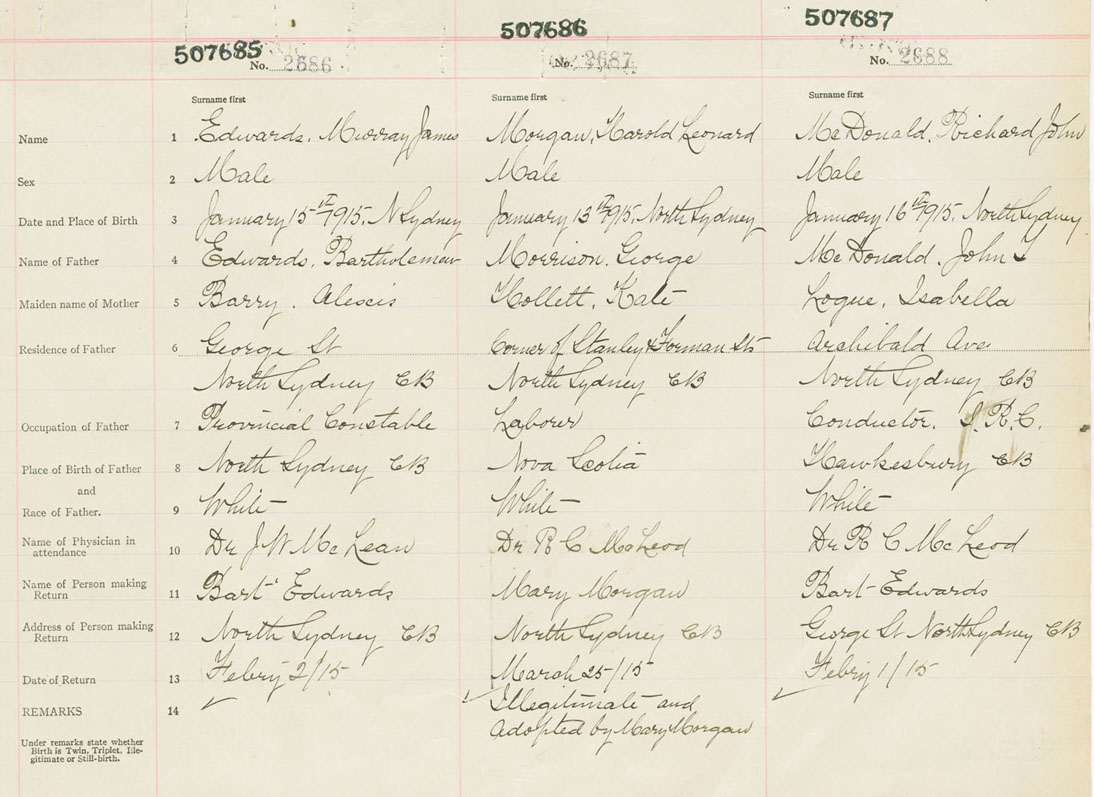 507685 507686 507687
No. 2686 No. 2687 No. 2688
Surname first Surname first Surname first
Name 1 Edwards, Murray James Morgan, Harold Leonard McDonald, Richard John
Sex 2 Male Male Male
Date and Place of Birth 3 January 15th 1915, N Sydney January 13th 1915, North Sydney January 16th 1915, North Sydney
Name of Father 4 Edwards, Bartholemew Morrison, George McDonald, John
Maiden name of Mother 5 Barry, Alexis Hollett, Kate Logue, Isabella
Residence of Father 6 George St Corner of Stanley & Forman Sts Archibald Ave
North Sydney CB North Sydney CB North Sydney CB
Occupation of Father 7 Provincial Constable Laborer Conductor, I.R.C.
Place of Birth of Father 8 North Sydney CB Nova Scotia Hawkesbury CB
and
Race of Father. 9 White White White
Name of Physician in
attendance 10 Dr J W McLean Dr R C McLeod Dr R C McLeod
Name of Person making
Return 11 Bart Edwards Mary Morgan Bart Edwards
Address of Person making
Return 12 North Sydney CB North Sydney CB George St North Sydney CB
Date of Return 13 Febry 2/15 March 25/15 Febry 1/15
REMARKS 14 Illegitimate and
adopted by Mary Morgan
Under remarks state whether
Birth is Twin, Triplet, Ille-
gitimate or Still-birth.